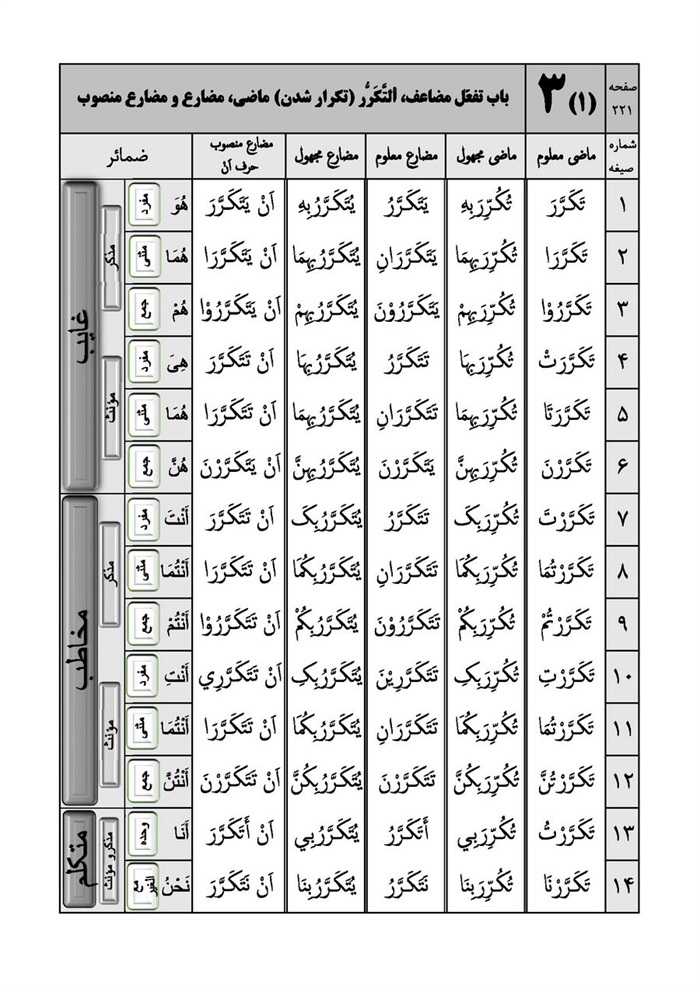 صفحه ۲۲۱ (۱) ۳ باب تفعّل مضاعف، اَلتَّكَرُّر (تکرار شدن) ماضی، مضارع و مضارع منصوب
شماره صیغه ماضی معلوم ماضی مجهول مضارع معلوم مضارع مجهول مضارع منصوب حرف اَنْ ضمائر
۱ تَكَرَّرَ تُكُرِّرَبِهِ يَتَكَرَّرُ يُتَكَرَّرُبِهِ اَنْ يَتَكَرَّرَ هُوَ مفرد مذکر غایب
۲ تَكَرَّرَا تُكُرِّرَبِهِمَا يَتَكَرَّرَانِ يُتَكَرَّرُبِهِمَا اَنْ يَتَكَرَّرَا هُمَا مثنی
۳ تَكَرَّرُوْا تُكُرِّرَبِهِمْ يَتَكَرَّرُوْنَ يُتَكَرَّرُبِهِمْ اَنْ يَتَكَرَّرُوْا هُمْ جمع
۴ تَكَرَّرَتْ تُكُرِّرَبِهَا تَتَكَرَّرُ يُتَكَرَّرُبِهَا اَنْ تَتَكَرَّرَ هِيَ مفرد مؤنث
۵ تَكَرَّرَتَا تُكُرِّرَبِهِمَا تَتَكَرَّرَانِ يُتَكَرَّرُبِهِمَا اَنْ تَتَكَرَّرَا هُمَا مثنی
۶ تَكَرَّرْنَ تُكُرِّرَبِهِنَّ يَتَكَرَّرْنَ يُتَكَرَّرُبِهِنَّ اَنْ يَتَكَرَّرْنَ هُنَّ جمع
۷ تَكَرَّرْتَ تُكُرِّرَبِکَ تَتَكَرَّرُ يُتَكَرَّرُبِکَ اَنْ تَتَكَرَّرَ أَنْتَ مفرد مذکر مخاطب
۸ تَكَرَّرْتُمَا تُكُرِّرَبِكُمَا تَتَكَرَّرَانِ يُتَكَرَّرُبِكُمَا اَنْ تَتَكَرَّرَا أَنْتُمَا مثنی
۹ تَكَرَّرْتُمْ تُكُرِّرَبِكُمْ تَتَكَرَّرُوْنَ يُتَكَرَّرُبِكُمْ اَنْ تَتَكَرَّرُوْا أَنْتُمْ جمع
۱۰ تَكَرَّرْتِ تُكُرِّرَبِکِ تَتَكَرَّرِيْنَ يُتَكَرَّرُبِکِ اَنْ تَتَكَرَّرِي أَنْتِ مفرد مؤنث
۱۱ تَكَرَّرْتُمَا تُكُرِّرَبِكُمَا تَتَكَرَّرَانِ يُتَكَرَّرُبِكُمَا اَنْ تَتَكَرَّرَا أَنْتُمَا مثنی
۱۲ تَكَرَّرْتُنَّ تُكُرِّرَبِكُنَّ تَتَكَرَّرْنَ يُتَكَرَّرُبِكُنَّ اَنْ تَتَكَرَّرْنَ أَنْتُنَّ جمع
۱۳ تَكَرَّرْتُ تُكُرِّرَبِي أَتَكَرَّرُ يُتَكَرَّرُبِي اَنْ أَتَكَرَّرَ أَنَا وحده مذکر و مؤنث متکلم
۱۴ تَكَرَّرْنَا تُكُرِّرَبِنَا نَتَكَرَّرُ يُتَكَرَّرُبِنَا اَنْ نَتَكَرَّرَ نَحْنُ مع الغیر